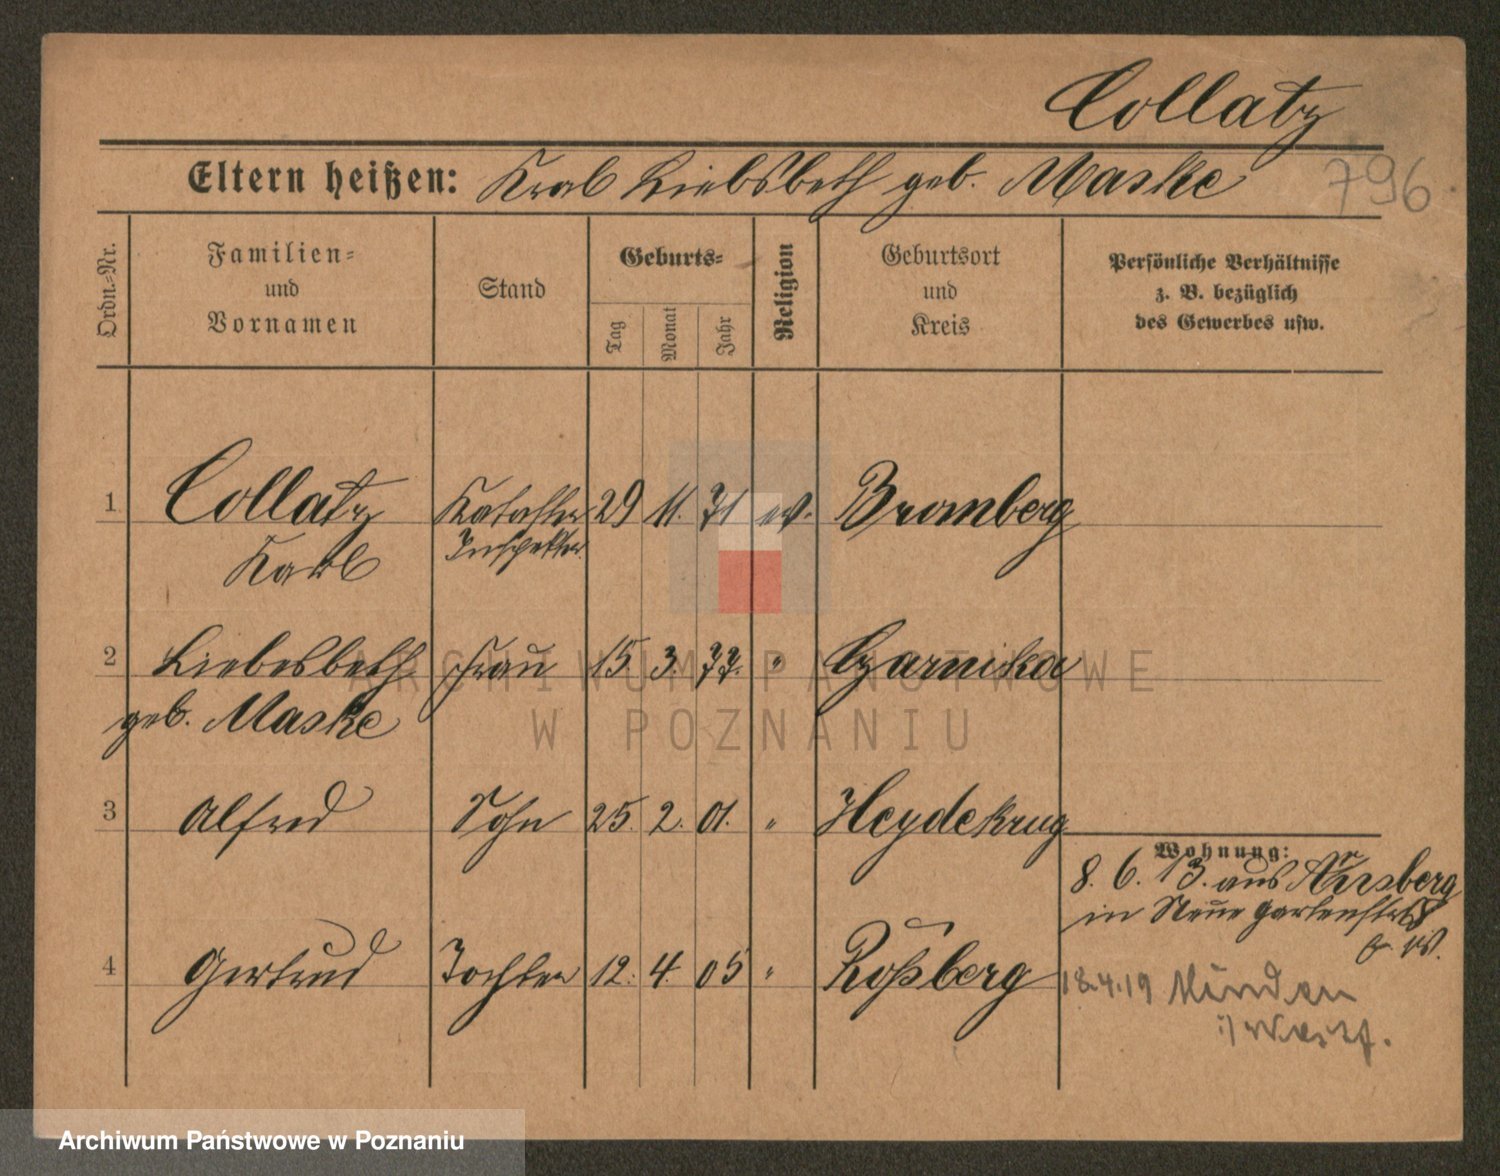 Collatz
Eltern heißen: Karl Liebsbeth geb. Maske
796
Ordn.-Nr.
Familien-
und
Vornamen
Stand
Geburts-
Tag
Monat
Jahr
Religion
Geburtsort
und
Kreis
Persönliche Verhältnisse
z. B. bezüglich
des Gewerbes usw.
1 Collatz Kataster 29 11. 71 ev. Bromberg
Karl Inspektor.
2 Liebesbeth Frau 15. 3. 77. " Czarnikau
geb. Maske
3 Alfred Sohn 25. 2. 01. " Heydekrug
Wohnung:
8. 6. 13. aus Arnsberg
in Neue Gartenstr.
4 Gertrud Tochter 12. 4. 05 " Roßberg
18.4.19 Minden
i/Westf.
ARCHIWUM PAŃSTWOWE
W POZNANIU
Archiwum Państwowe w Poznaniu